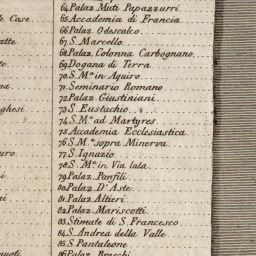 64. Palaz. Muti Papazzurri.
65. Accademia di Francia
66. Palaz. Odescalco
67. S. Marcello.
68. Palaz. Colonna Carbognano.
69. Dogana di Terra
70. S. M.ª in Aquiro.
71. Seminario Romano
72. Palaz. Giustiniani
73. S. Eustachio
74. S. M.ª ad Martyres
75. Accademia Ecclesiastica
76. S. M.ª sopra Minerva
77. S. Ignazio.
78. S. M.ª in Via lata
79. Palaz. Panfili
80. Palaz. D'Aste.
81. Palaz. Altieri
82. Palaz. Mariscotti.
83. Stimate di S. Francesco
84. S. Andrea della Valle
85. S. Pantaleone
86. Palaz. Braschi
Case.
atte
ghesi
uro
ni